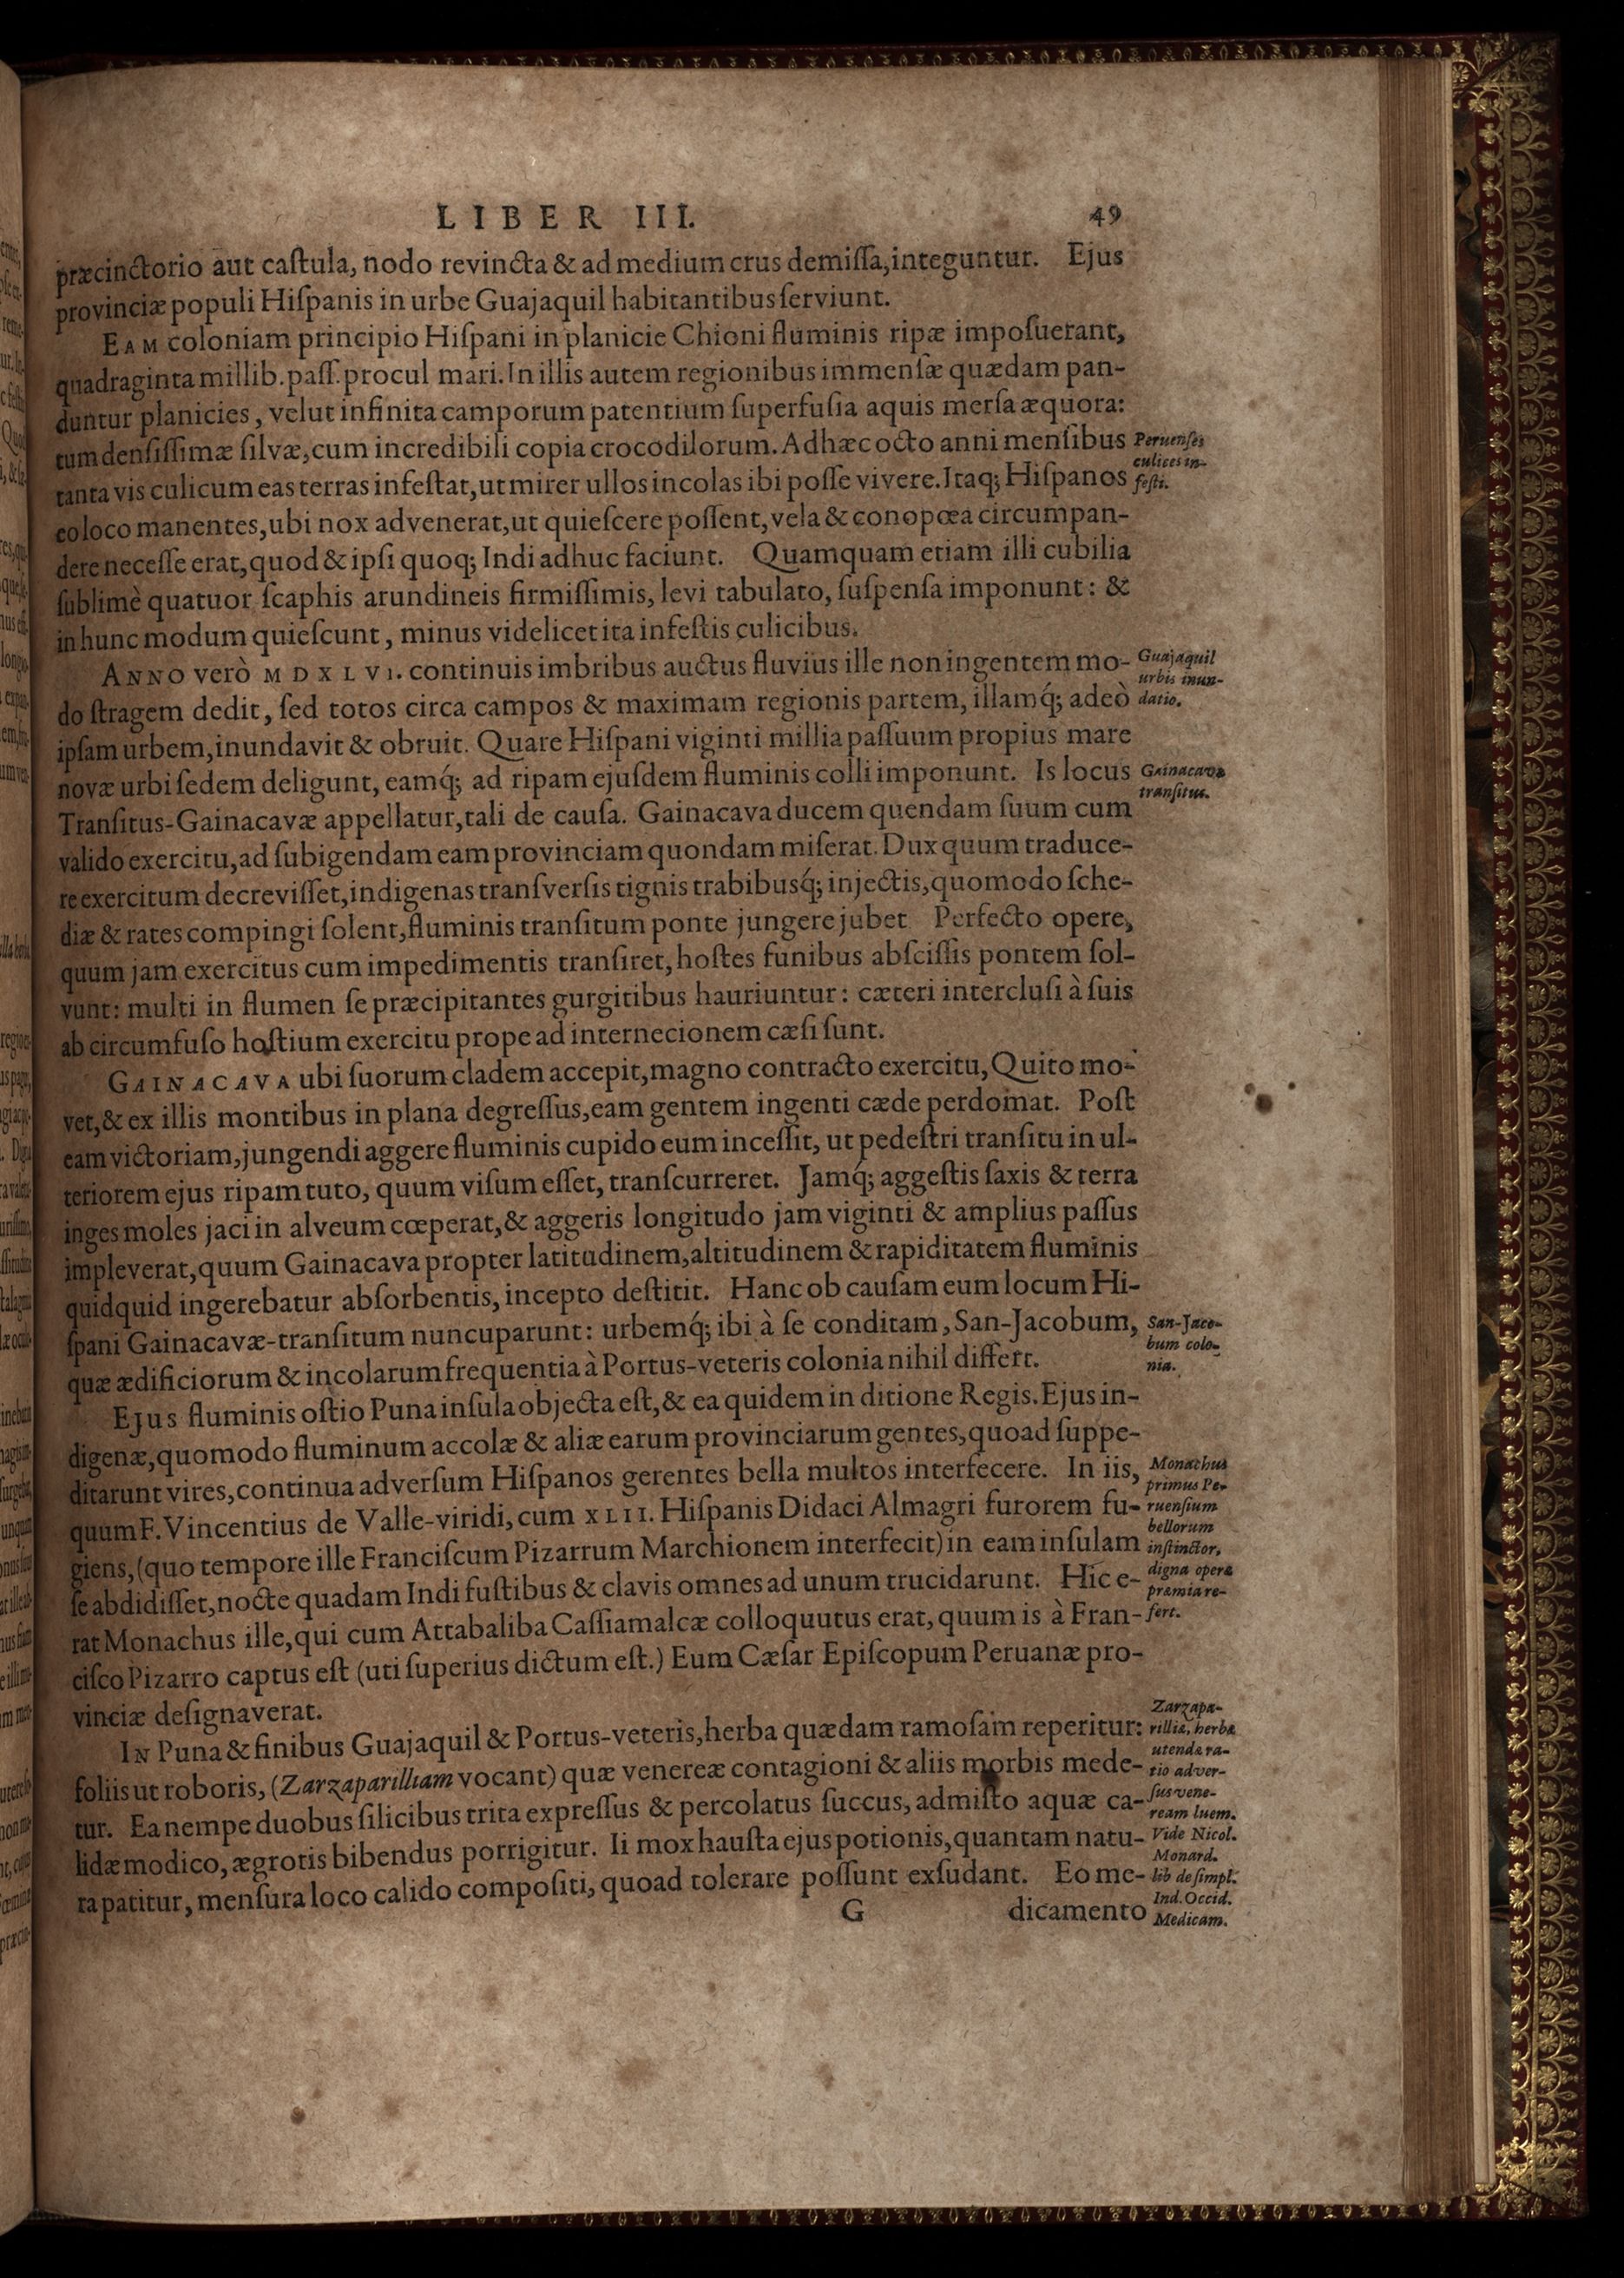 LIBER III. 49
præcinctorio aut caſtula, nodo revincta & ad medium crus demiſſa, integuntur. Ejus
provinciæ populi Hiſpanis in urbe Guajaquil habitantibus ſerviunt.
EAM coloniam principio Hiſpani in planicie Chioni fluminis ripæ impoſuerant,
quadraginta millib. paſſ. procul mari. In illis autem regionibus immenſæ quædam pan-
duntur planicies, velut infinita camporum patentium ſuperfuſia aquis merſa æquora:
tum denſiſſimæ ſilvæ, cum incredibili copia crocodilorum. Ad hæc octo anni menſibus
tanta vis culicum eas terras infeſtat, ut mirer ullos incolas ibi poſſe vivere. Itaq; Hiſpanos
Peruenſes
culices in-
feſti.
eo loco manentes, ubi nox advenerat, ut quieſcere poſſent, vela & conopœa circumpan-
dere neceſſe erat, quod & ipſi quoq; Indi adhuc faciunt. Quamquam etiam illi cubilia
ſublimè quatuor ſcaphis arundineis firmiſſimis, levi tabulato, ſuſpenſa imponunt: &
in hunc modum quieſcunt, minus videlicet ita infeſtis culicibus.
ANNO verò MDXLVI. continuis imbribus auctus fluvius ille non ingentem mo-
do ſtragem dedit, ſed totos circa campos & maximam regionis partem, illamq́; adeò
Guajaquil
urbis inun-
datio.
ipſam urbem, inundavit & obruit. Quare Hiſpani viginti millia paſſuum propius mare
novæ urbi ſedem deligunt, eamq́; ad ripam ejuſdem fluminis colli imponunt. Is locus
Gainacavæ
tranſitus.
Tranſitus-Gainacavæ appellatur, tali de cauſa. Gainacava ducem quendam ſuum cum
valido exercitu, ad ſubigendam eam provinciam quondam miſerat. Dux quum traduce-
re exercitum decreviſſet, indigenas tranſverſis tignis trabibusq́; injectis, quomodo ſche-
diæ & rates compingi ſolent, fluminis tranſitum ponte jungere jubet Perfecto opere,
quum jam exercitus cum impedimentis tranſiret, hoſtes funibus abſciſſis pontem ſol-
vunt: multi in flumen ſe præcipitantes gurgitibus hauriuntur: cæteri intercluſi à ſuis
ab circumfuſo hoſtium exercitu prope ad internecionem cæſi ſunt.
GAINACAVA ubi ſuorum cladem accepit, magno contracto exercitu, Quito mo-
vet, & ex illis montibus in plana degreſſus, eam gentem ingenti cæde perdomat. Poſt
eam victoriam, jungendi aggere fluminis cupido eum inceſſit, ut pedeſtri tranſitu in ul-
teriorem ejus ripam tuto, quum viſum eſſet, tranſcurreret. Jamq́; aggeſtis ſaxis & terra
inges moles jaci in alveum cœperat, & aggeris longitudo jam viginti & amplius paſſus
impleverat, quum Gainacava propter latitudinem, altitudinem & rapiditatem fluminis
quidquid ingerebatur abſorbentis, incepto deſtitit. Hanc ob cauſam eum locum Hi-
ſpani Gainacavæ-tranſitum nuncuparunt: urbemq́; ibi à ſe conditam, San-Jacobum,
quæ ædificiorum & incolarum frequentia à Portus-veteris colonia nihil differt.
San-Jaco-
bum colo-
nia.
EJUS fluminis oſtio Puna inſula objecta eſt, & ea quidem in ditione Regis. Ejus in-
digenæ, quomodo fluminum accolæ & aliæ earum provinciarum gentes, quoad ſuppe-
ditarunt vires, continua adverſum Hiſpanos gerentes bella multos interfecere. In iis,
quum F. Vincentius de Valle-viridi, cum XLII. Hiſpanis Didaci Almagri furorem fu-
giens, (quo tempore ille Franciſcum Pizarrum Marchionem interfecit) in eam inſulam
ſe abdidiſſet, nocte quadam Indi fuſtibus & clavis omnes ad unum trucidarunt. Hic e-
rat Monachus ille, qui cum Attabaliba Caſſiamalcæ colloquutus erat, quum is à Fran-
Monachus
primus Pe-
ruenſium
bellorum
inſtinctor,
digna opera
præmia re-
fert.
ciſco Pizarro captus eſt (uti ſuperius dictum eſt.) Eum Cæſar Epiſcopum Peruanæ pro-
vinciæ deſignaverat.
IN Puna & finibus Guajaquil & Portus-veteris, herba quædam ramoſam reperitur:
foliis ut roboris, (Zarzaparilliam vocant) quæ venereæ contagioni & aliis morbis mede-
tur. Ea nempe duobus ſilicibus trita expreſſus & percolatus ſuccus, admiſto aquæ ca-
lidæ modico, ægrotis bibendus porrigitur. Ii mox hauſta ejus potionis, quantam natu-
ra patitur, menſura loco calido compoſiti, quoad tolerare poſſunt exſudant. Eo me-
Zarzapa-
rilliæ, herbæ
utendæ ra-
tio adver-
ſus vene-
ream luem.
Vide Nicol.
Monard.
lib de ſimpl.
Ind. Occid.
Medicam.
G dicamento